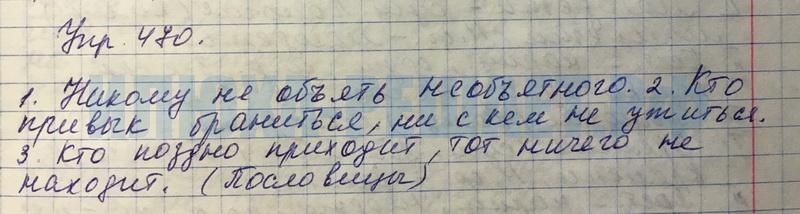 Упр. 470.
1. Никому не объять необъятного. 2. Кто
привык браниться, ни с кем не ужиться.
3. Кто поздно приходит, тот ничего не
находит. (Пословицы)